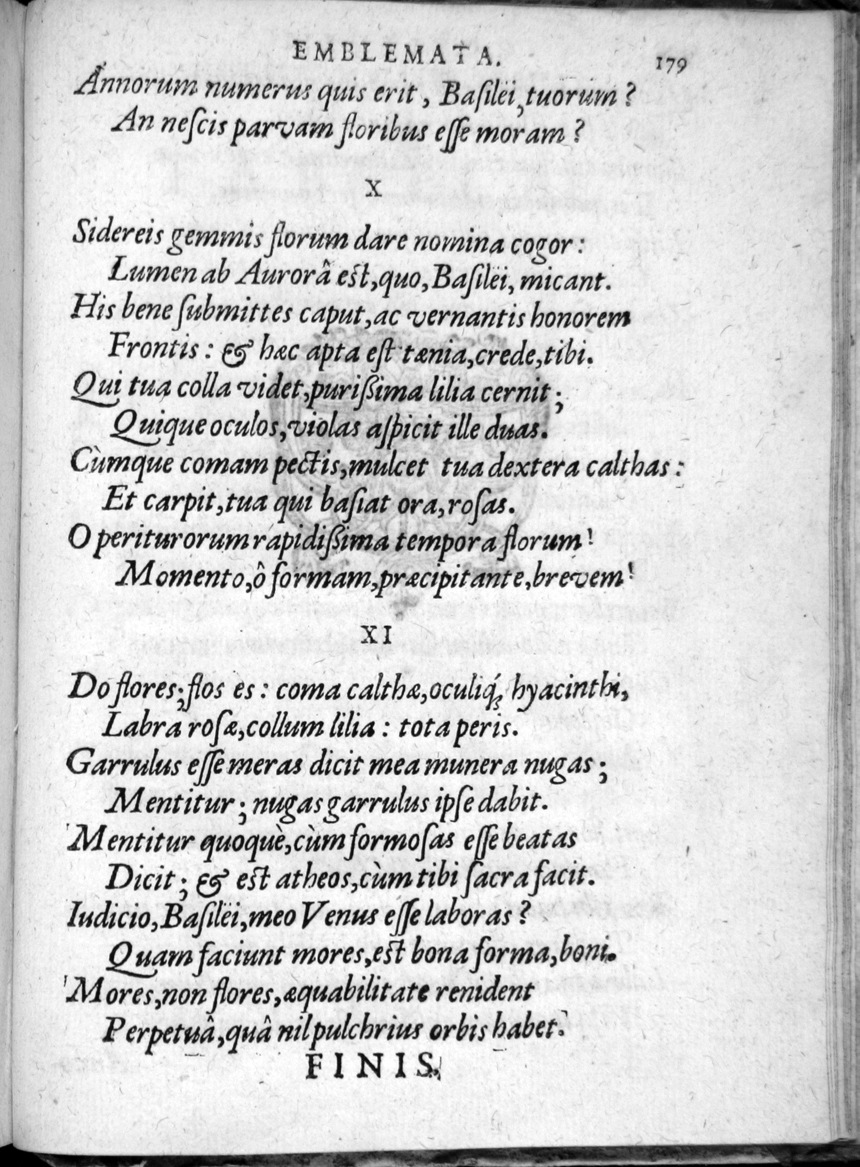 EMBLEMATA. 179
Annorum numerus quis erit, Basileï, tuorum?
An nescis parvam floribus esse moram?
X
Sidereis gemmis florum dare nomina cogor:
Lumen ab Aurorâ est, quo, Basileï, micant.
His bene submittes caput, ac vernantis honorem
Frontis: & hæc apta est tænia, crede, tibi.
Qui tua colla videt, purißima lilia cernit;
Quique oculos, violas aspicit ille duas.
Cùmque comam pectis, mulcet tua dextera calthas:
Et carpit, tua qui basiat ora, rosas.
O periturorum rapidißima tempora florum!
Momento, ô formam, præcipitante, brevem!
XI
Do flores; flos es: coma calthæ, oculiq́; hyacinthi,
Labra rosæ, collum lilia: tota peris.
Garrulus esse meras dicit mea munera nugas;
Mentitur; nugas garrulus ipse dabit.
Mentitur quoquè, cùm formosas esse beatas
Dicit; & est atheos, cùm tibi sacra facit.
Iudicio, Basileï, meo Venus esse laboras?
Quam faciunt mores, est bona forma, boni.
Mores, non flores, æquabilitate renident
Perpetuâ, quâ nil pulchrius orbis habet.
FINIS.